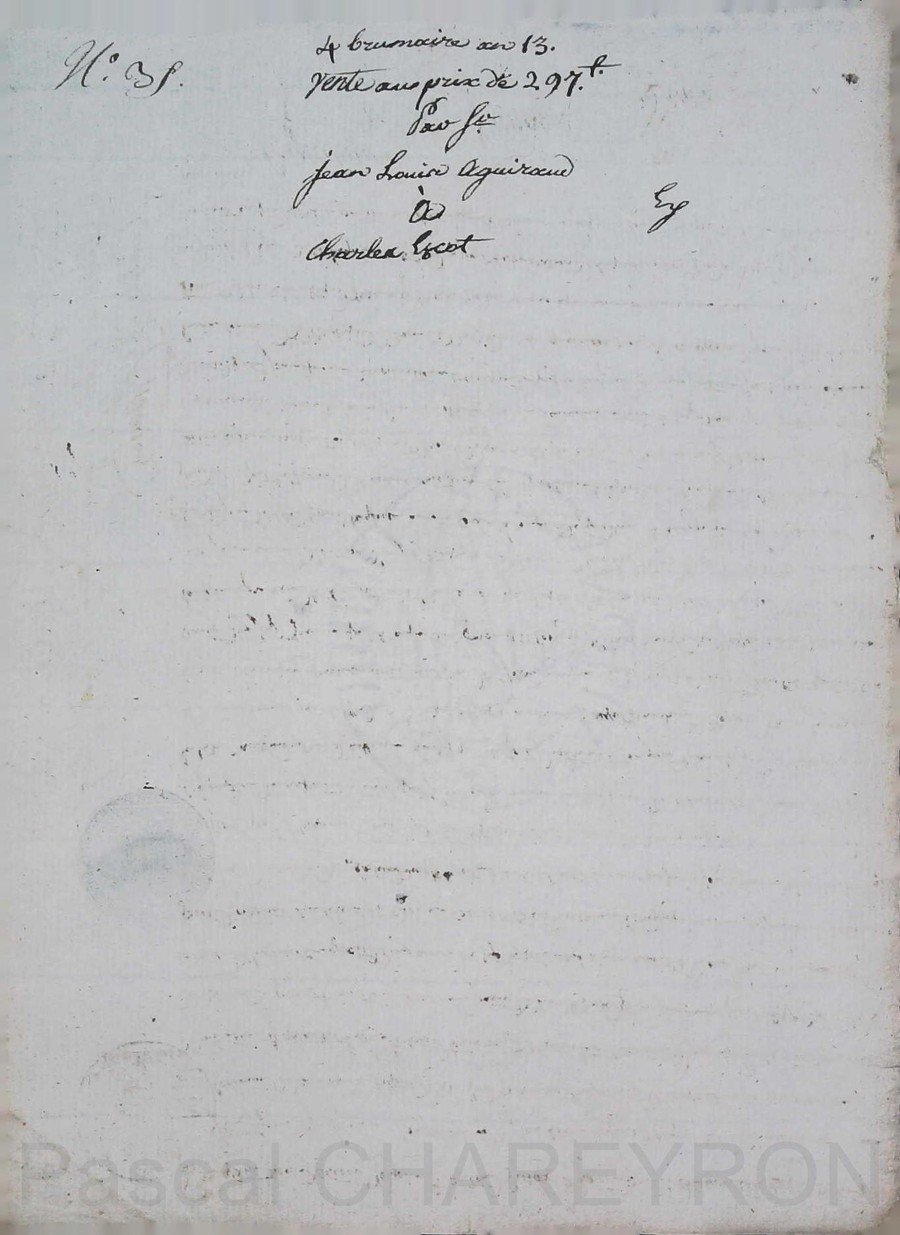 N.° 35.
4 brumaire an 13.
vente au prix de 297.ᵗ.
Par Sʳ
Jean Louis Aguiraud
à
Ex
Charles Escot
Pascal CHAREYRON